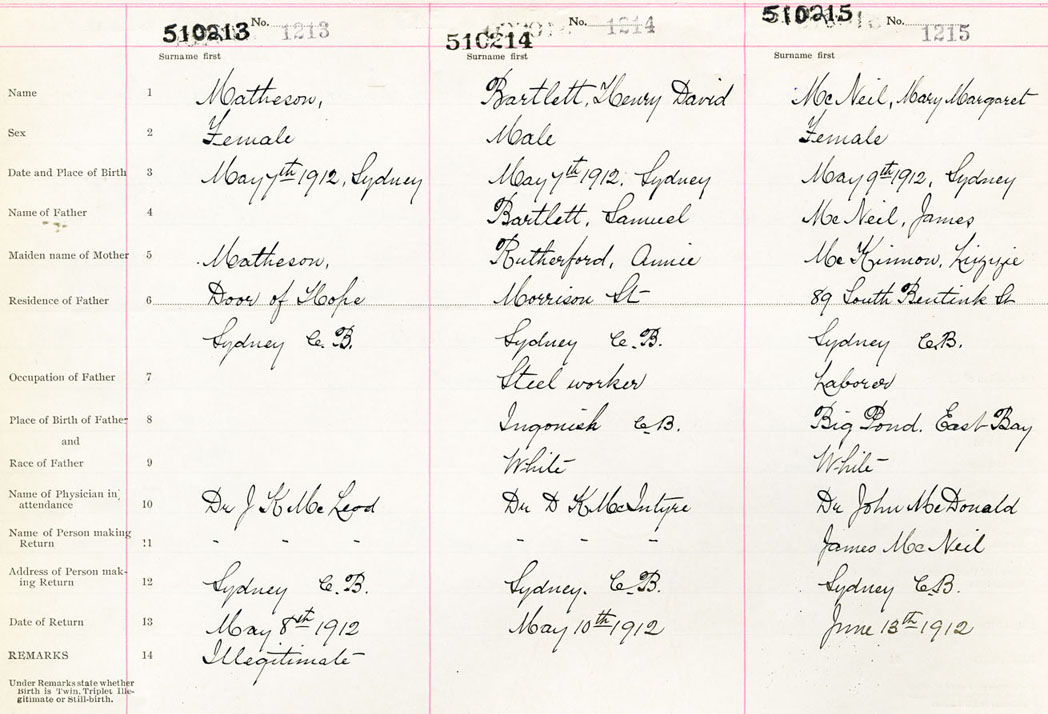 510213 No. 1213
510214 No. 1214
510215 No. 1215
Surname first Surname first Surname first
Name 1 Matheson, Bartlett, Henry David McNeil, Mary Margaret
Sex 2 Female Male Female
Date and Place of Birth 3 May 7th 1912, Sydney May 7th 1912. Sydney May 9th 1912, Sydney
Name of Father 4 Bartlett, Samuel McNeil, James
Maiden name of Mother 5 Matheson, Rutherford, Annie McKinnon, Lizzie
Residence of Father 6 Door of Hope Morrison St 89 South Bentink St
Sydney C.B. Sydney C.B. Sydney C.B.
Occupation of Father 7 Steel worker Laborer
Place of Birth of Father 8 Ingonish C.B. Big Pond. East Bay
and
Race of Father 9 White White
Name of Physician in attendance 10 Dr J K McLeod Dr D K McIntyre Dr John McDonald
Name of Person making Return 11 - - - - - - James McNeil
Address of Person mak-
ing Return 12 Sydney C.B. Sydney. C.B. Sydney C.B.
Date of Return 13 May 8th 1912 May 10th 1912 June 13th 1912
REMARKS 14 Illegitimate
Under Remarks state whether
Birth is Twin, Triplet Ille-
gitimate or Still-birth.